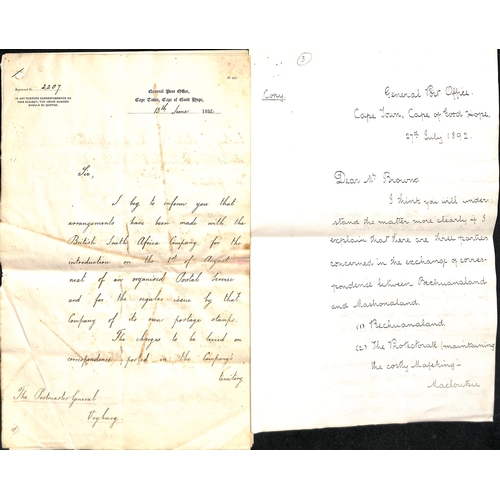 Registered No. 2207
IN ANY FURTHER CORRESPONDENCE ON
THIS SUBJECT, THE ABOVE NUMBER
SHOULD BE QUOTED.
General Post Office,
Cape Town, Cape of Good Hope,
13th June 1892.
Sir,
I beg to inform you that
arrangements have been made with the
British South Africa Company for the
introduction on the 1st of August
next of an organised Postal Service
and for the regular issue by that
Company of its own postage stamps.
The charges to be levied on
correspondence posted in the Company's
territory
The Postmaster General
Vryburg.
(3)
Copy.
General Post Office.
Cape Town, Cape of Good Hope,
27th July 1892.
Dear Mr Browne
I think you will under-
stand the matter more clearly if I
explain that there are three parties
concerned in the exchange of corres-
pondence between Bechuanaland
and Mashonaland.
(1) Bechuanaland.
(2) The Protectorate (maintaining
the costly Mafeking-
Macloutsie